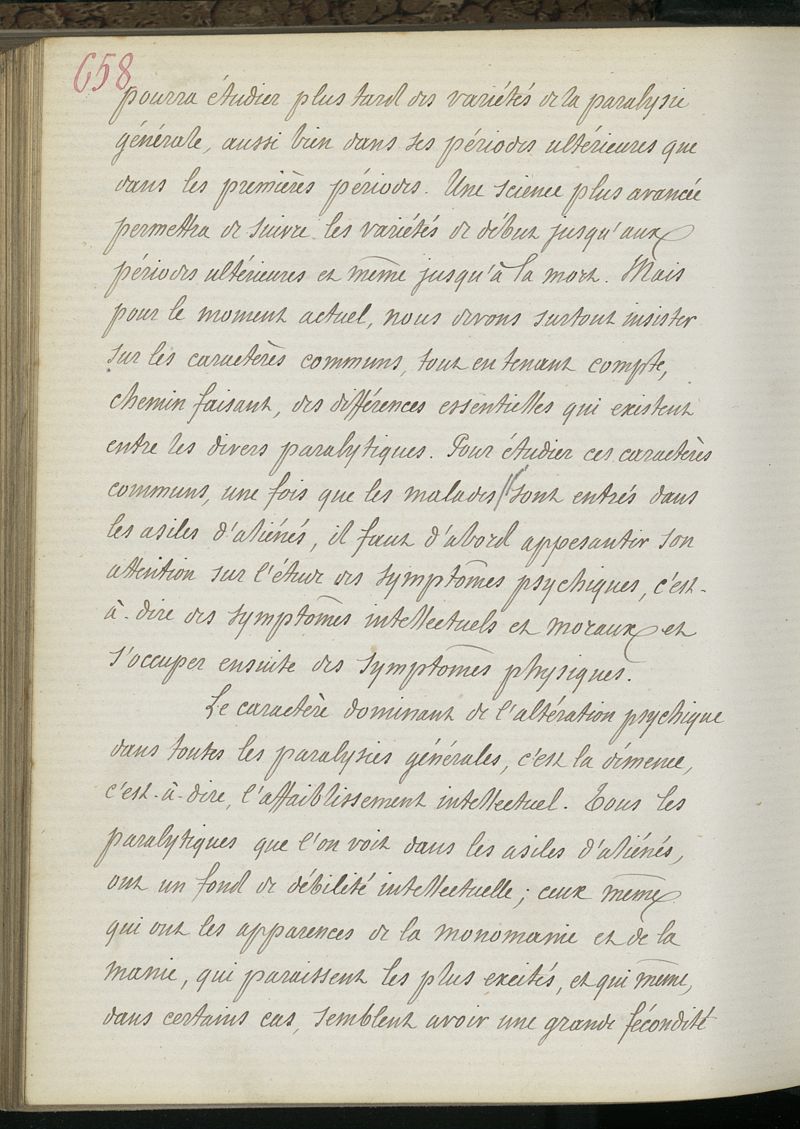 658
pourra étudier plus tard des variétés de la paralysie
générale, aussi bien dans ses périodes ultérieures que
dans les premières périodes. Une science plus avancée
permettra de suivre les variétés de début jusqu'aux
périodes ultérieures et même jusqu'à la mort. Mais
pour le moment actuel, nous devons surtout insister
sur les caractères communs, tout en tenant compte,
chemin faisant, des différences essentielles qui existent
entre les divers paralytiques. Pour étudier ces caractères
communs, une fois que les malades sont entrés dans
les asiles d'aliénés, il faut d'abord appesantir son
attention sur l'étude des symptômes psychiques, c'est-
à-dire des symptômes intellectuels et moraux et
s'occuper ensuite des symptômes physiques.
Le caractère dominant de l'altération psychique
dans toutes les paralysies générales, c'est la démence,
c'est-à-dire, l'affaiblissement intellectuel. Tous les
paralytiques que l'on voit dans les asiles d'aliénés,
ont un fond de débilité intellectuelle; ceux même
qui ont les apparences de la monomanie et de la
manie, qui paraissent les plus excités, et qui même,
dans certains cas, semblent avoir une grande fécondité